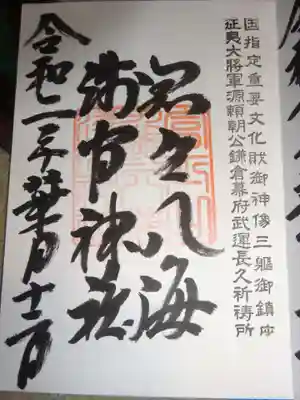 国指定重要文化財御神像三軀御鎮座
征夷大將軍源頼朝公鎌倉幕府武運長久祈祷所
忍野八海
浅間神社
令和二年葉月十二日